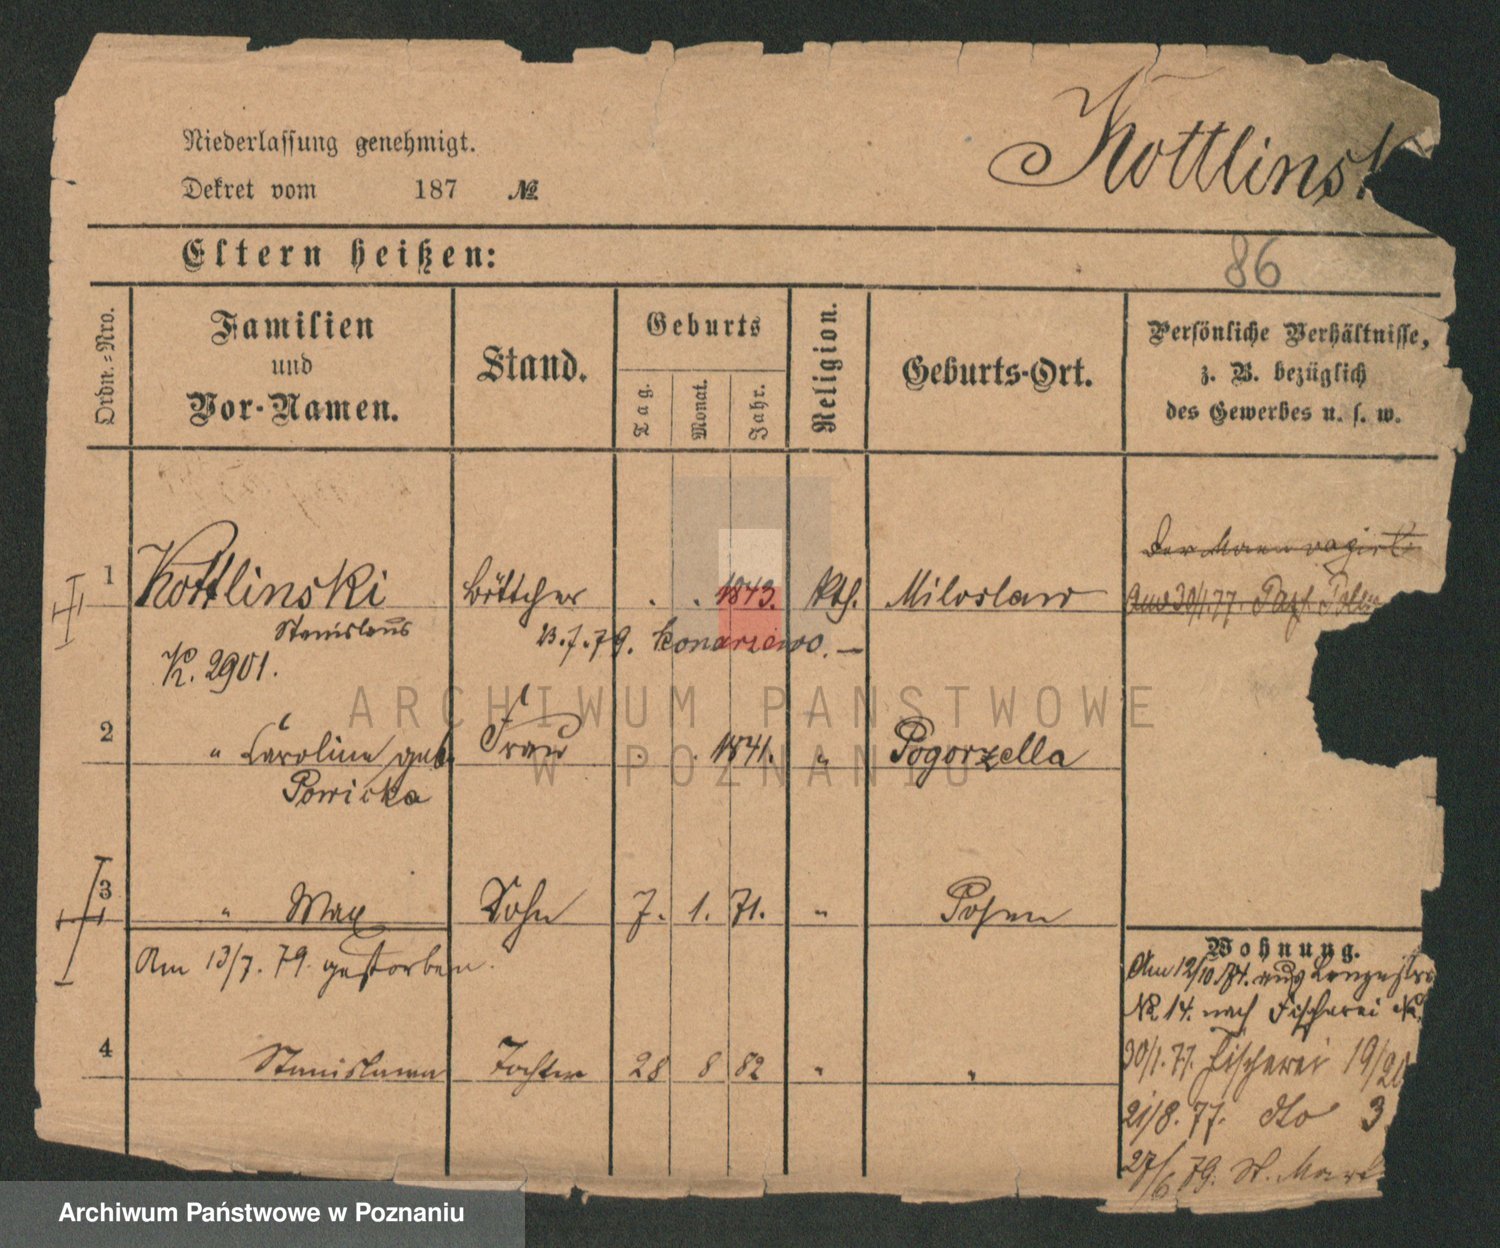 Niederlassung genehmigt.
Dekret vom 187 №
Kottlinsk
Eltern heißen:
86
Ordn.=Nro.
Familien
und
Vor-Namen.
Stand.
Geburts
Tag.
Monat.
Jahr.
Religion.
Geburts-Ort.
Persönliche Verhältnisse,
z. B. bezüglich
des Gewerbes u. s. w.
Der Mann vagirt
1 Kottlinski Böttcher . . 1843. Kth. Miloslaw
30/1 77.
Stanislaus
23.7.79. Konarzewo. —
K. 2901.
2 " Caroline geb. Frau . . 1841. " Pogorzella
Powicka
3 " Max Sohn 7. 1. 71. " Posen
Am 13/7. 79. gestorben.
Wohnung.
Am 12/10 74. aus
№ 14. nach Fischerei №
30/1. 77. Fischerei 19/20
21/8. 77. dto 3
27/6 79. St. Mart
4 Stanislawa Tochter 28 8 82 " "
ARCHIWUM PAŃSTWOWE
W POZNANIU
Archiwum Państwowe w Poznaniu